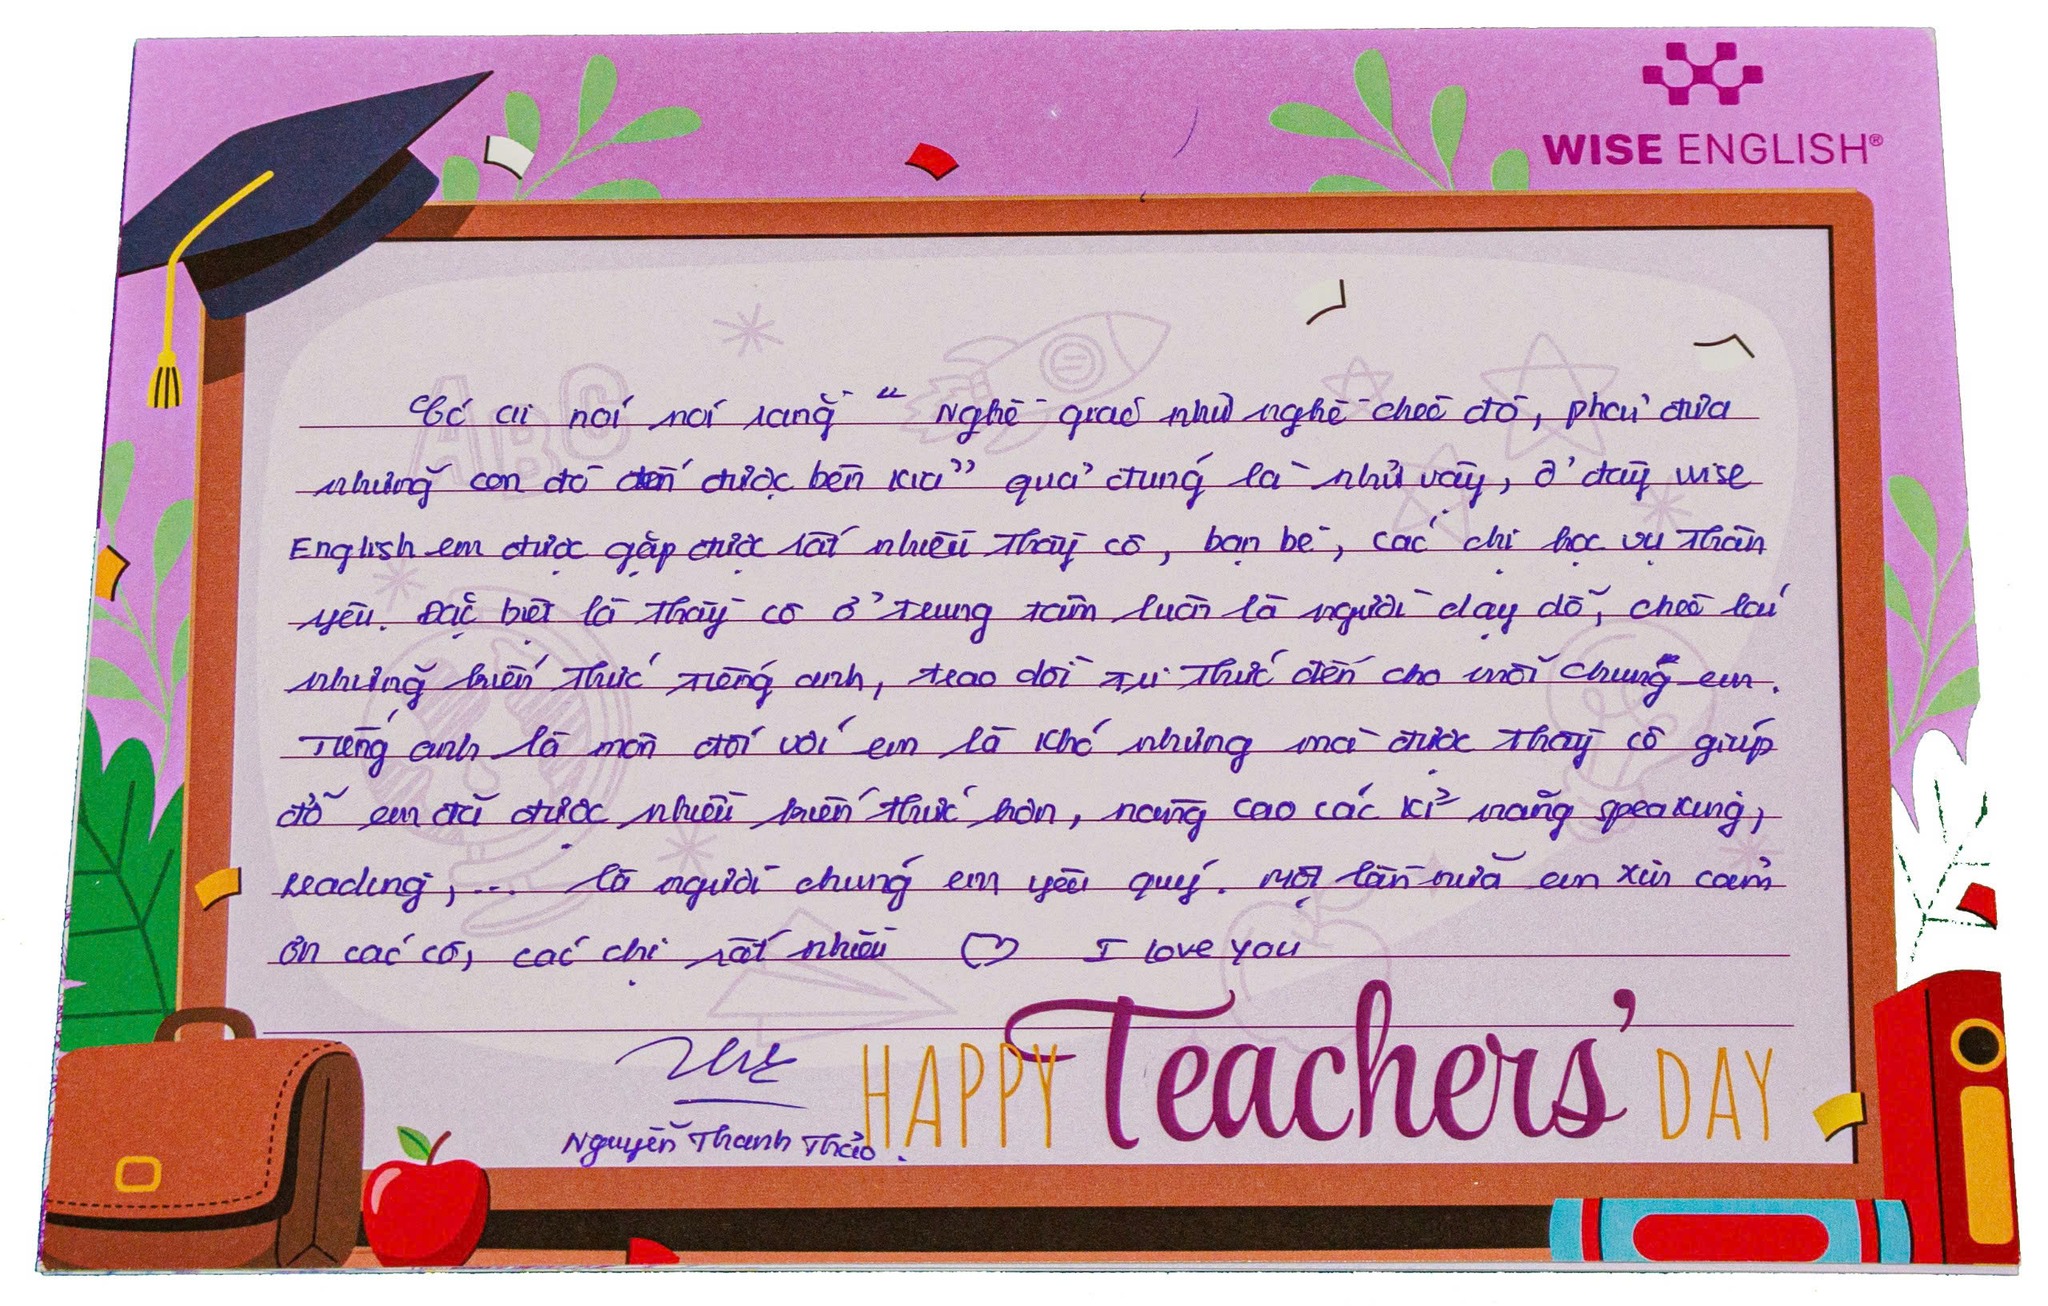 WISE ENGLISH®
ABC
Có ai nói nói rằng " Nghề giáo như nghề chèo đò, phải đưa
những con đò đến được bên kia" quả đúng là như vậy, ở đây Wise
English em được gặp được rất nhiều thầy cô, bạn bè, các chị học vụ thân
yêu. Đặc biệt là thầy cô ở trung tâm luôn là người dạy dỗ, chèo lái
những kiến thức tiếng anh, trao dồi tri thức đến cho mỗi chúng em.
Tiếng anh là môn đối với em là khó nhưng mà được thầy cô giúp
đỡ em đã được nhiều kiến thức hơn, nâng cao các kĩ năng speaking,
reading, ... là người chúng em yêu quý. Một lần nữa em xin cảm
ơn các cô, các chị rất nhiều ♡ I love you
HAPPY Teachers' DAY
Nguyễn Thanh Thảo.